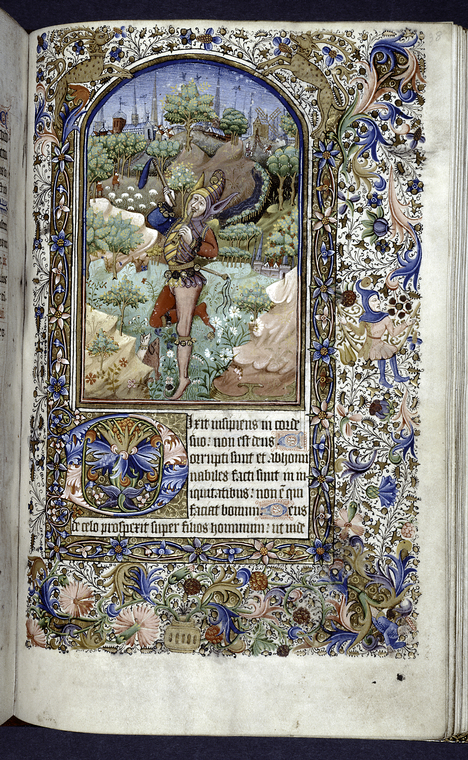 Dixit insipiens in corde
suo: non est deus
corrupti sunt et abhomi
nabiles facti sunt in in
iquitatibus: non ē qui
faciat bonum Deus
de celo prospexit super filios hominum: ut vide